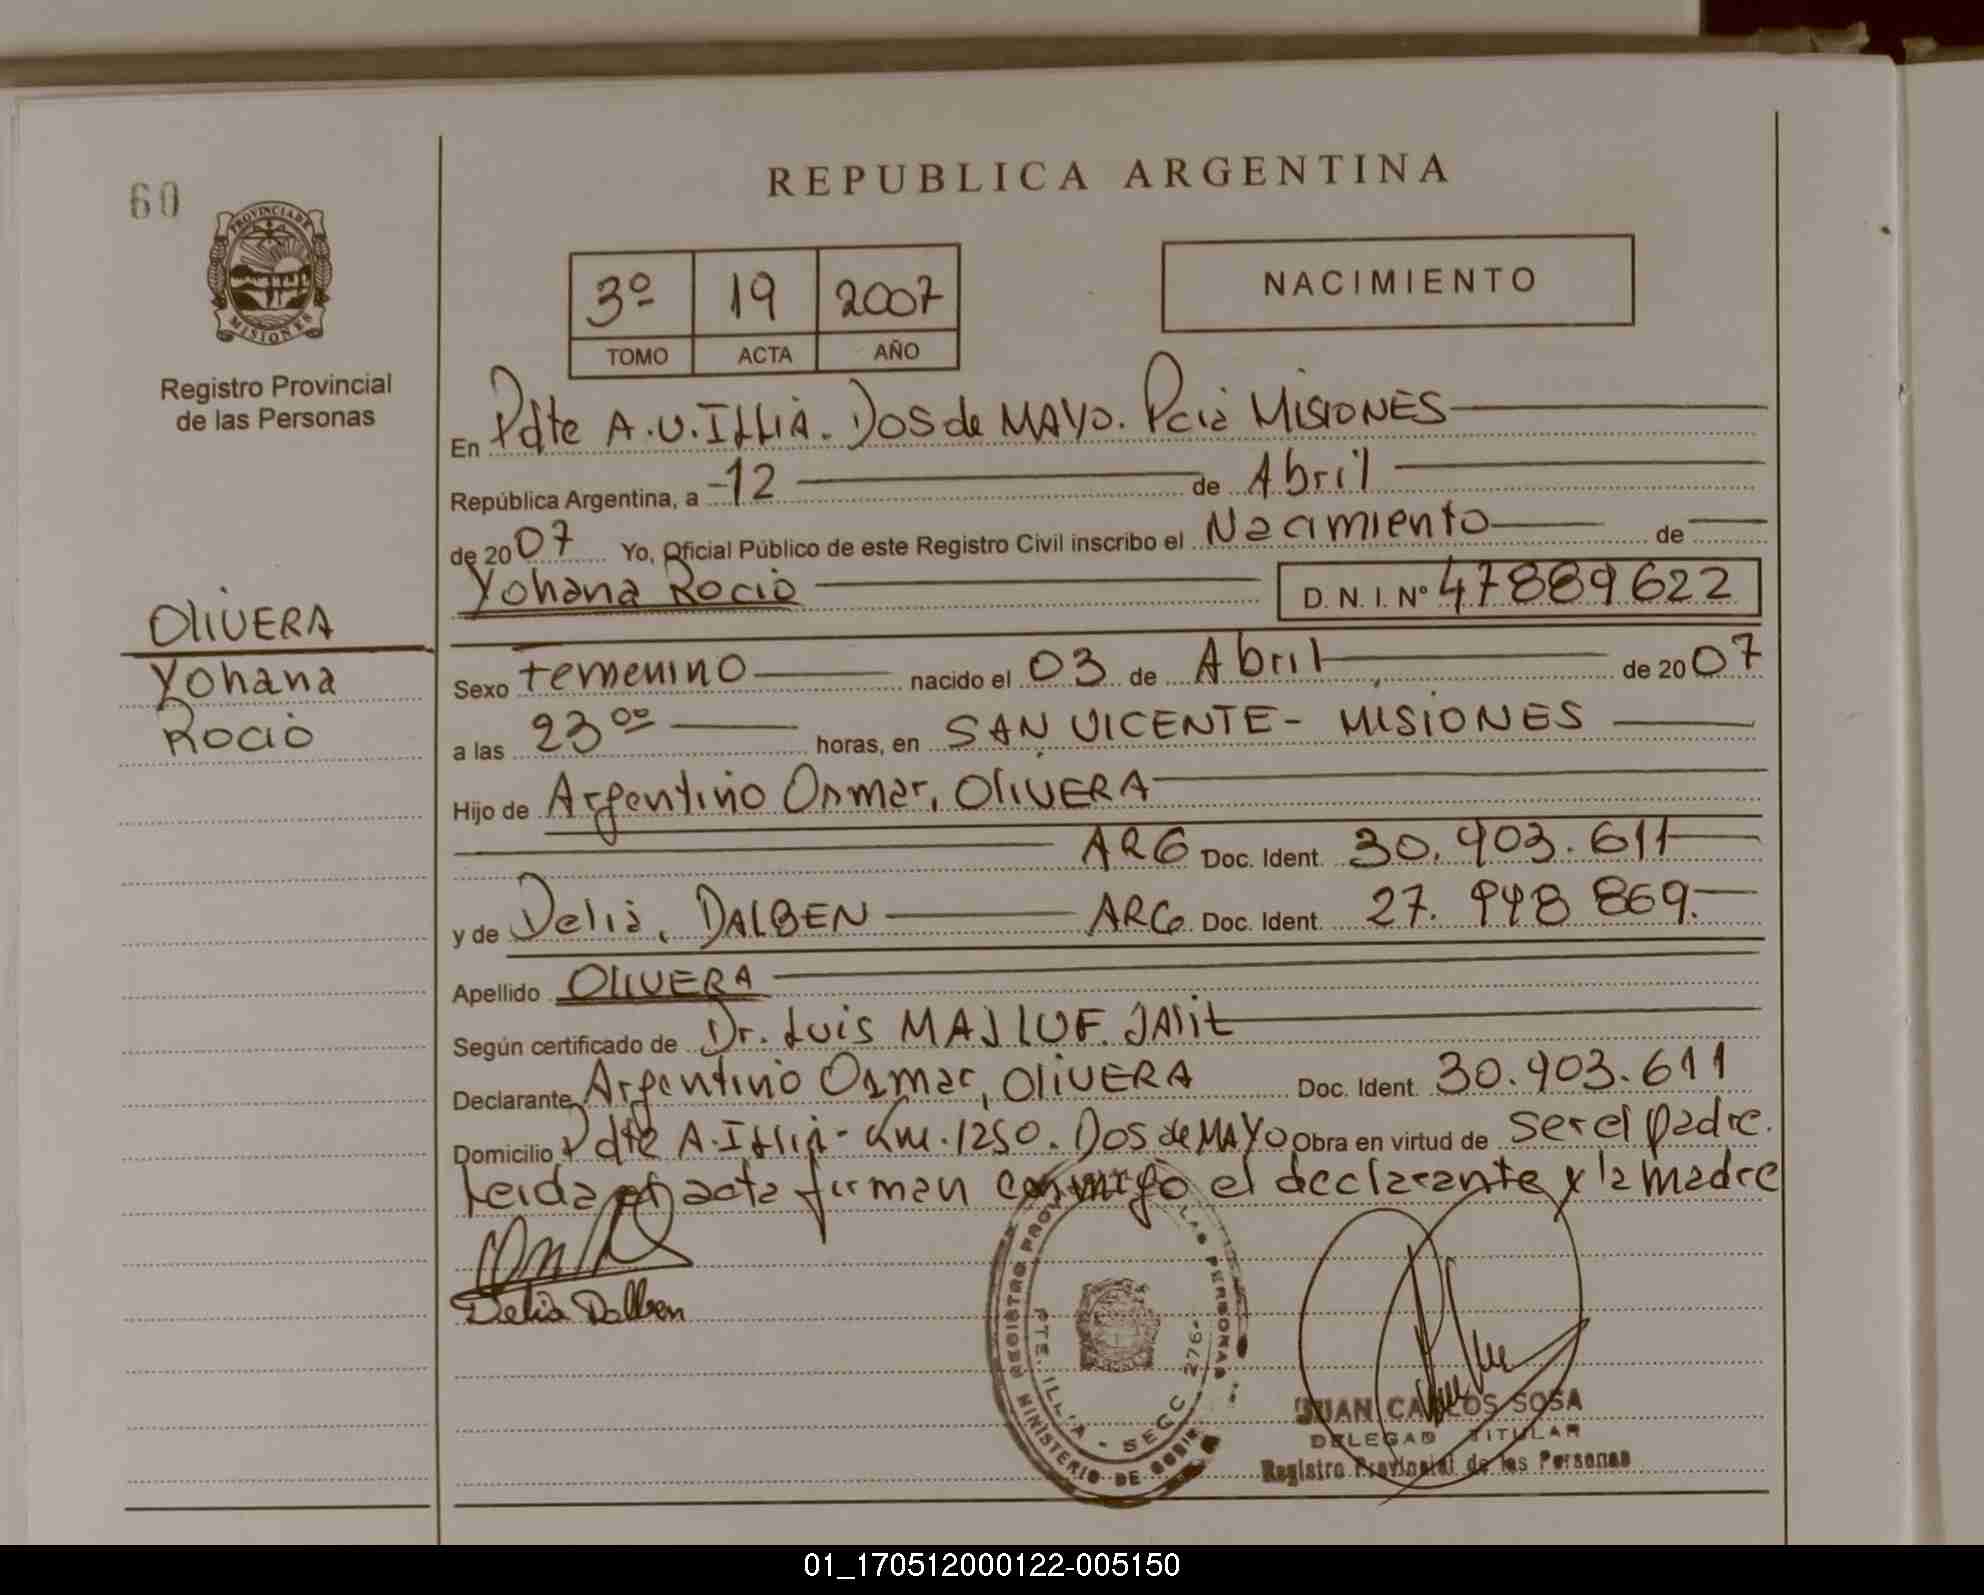 60
PROVINCIA DE
MISIONES
Registro Provincial
de las Personas
OLIVERA
Yohana
Rocio
REPUBLICA ARGENTINA
3º 19 2007
TOMO ACTA AÑO
NACIMIENTO
En Pdte A.U. Illia. Dos de MAYO. Pcia MISIONES
República Argentina, a -12 de Abril
de 2007 Yo, Oficial Público de este Registro Civil inscribo el Nacimiento de
Yohana Rocio D. N. I. Nº 47889622
Sexo Femenino nacido el 03 de Abril de 2007
a las 23⁰⁰ horas, en SAN VICENTE - MISIONES
Hijo de Argentino Osmar, OLIVERA
ARG Doc. Ident. 30.903.611
y de Delia, DALBEN ARG. Doc. Ident. 27.948 869.
Apellido OLIVERA
Según certificado de Dr. Luis MAJLUF. JALIT
Declarante Argentino Osmar, OLIVERA Doc. Ident. 30.903.611
Domicilio Pdte A. Illia - Km. 1250. Dos de MAYO Obra en virtud de ser el padre.
Leida el acta firman conmigo el declarante y la madre
Delia Dalben
REGISTRO PROV LAS PERSONAS
PTE. ILLIA - SECC. 276
MINISTERIO DE GOBIE
JUAN CARLOS SOSA
DELEGAD TITULAR
Registro Provincial de las Personas
01_170512000122-005150